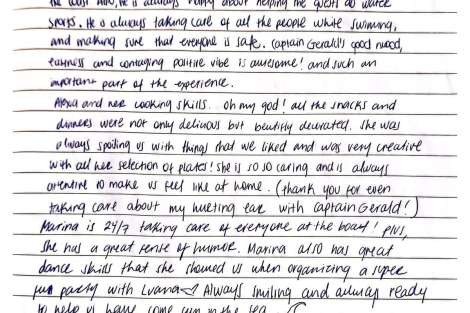 the boat who, he is always happy about helping the guests do water
sports. He is always taking care of all the people while swimming,
and making sure that everyone is safe. Captain Gerald's good mood,
fairness and contaging positive vibe is awesome! and such an
important part of the experience.
Alexia and her cooking skills. oh my god! all the snacks and
dinners were not only delicious but beutifly decorated. She was
always spoiling us with things that we liked and was very creative
with all her selection of plates! She is so so caring and is always
attentive to make us feel like at home. (thank you for even
taking care about my hurting ear with Captain Gerald!)
Marina is 24/7 taking care of everyone at the boat! plus,
she has a great sense of humor. Marina also has great
dance skills that she showed us when organizing a super
fun party with Luana Always smiling and always ready
to help us have some fun in the sea.